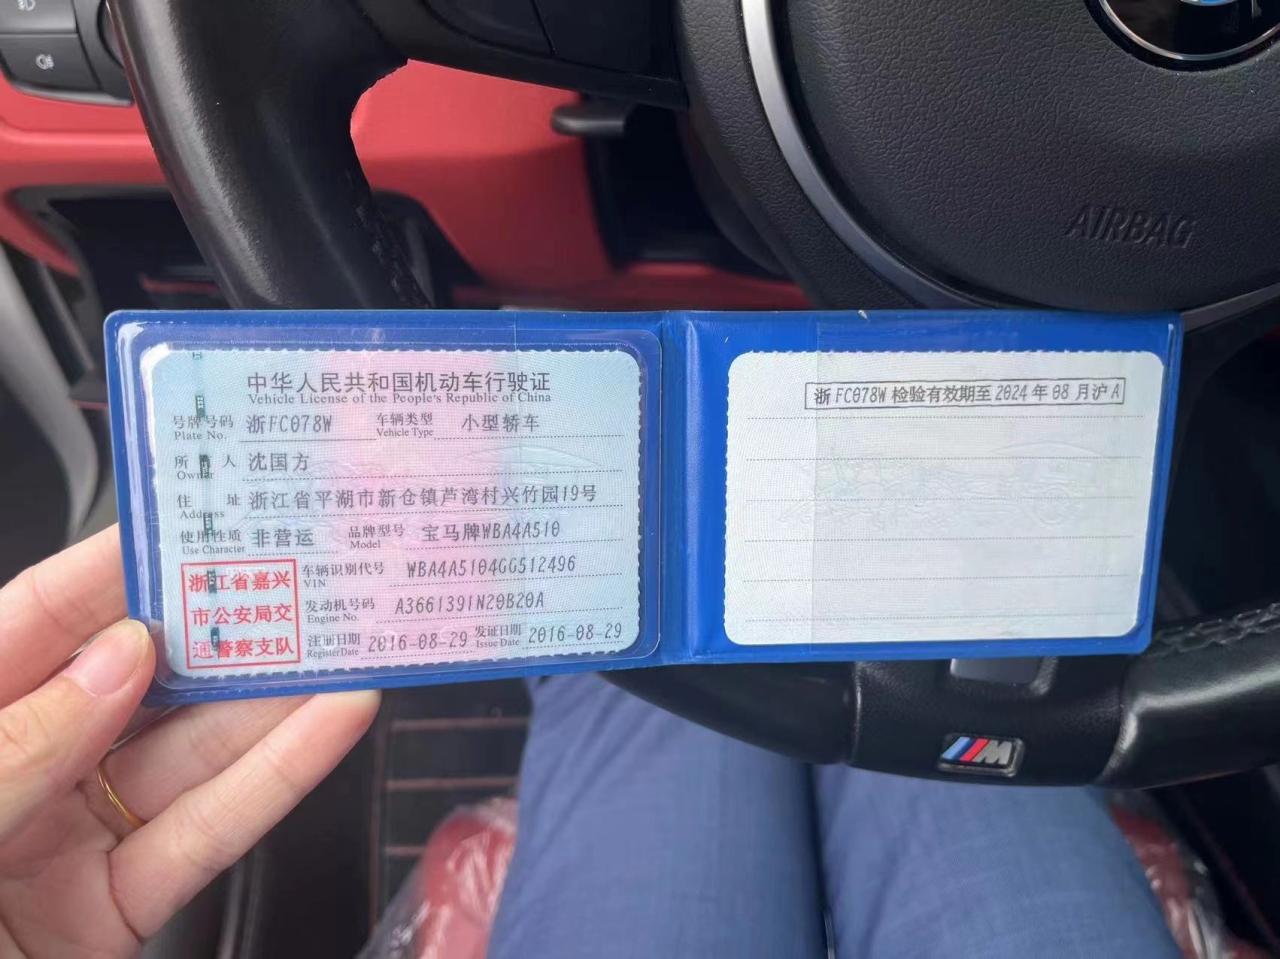 AIRBAG
中华人民共和国机动车行驶证
Vehicle License of the People's Republic of China
号牌号码 浙FC078W 车辆类型 小型轿车
Plate No. Vehicle Type
所有人 沈国方
Owner
住址 浙江省平湖市新仓镇芦湾村兴竹园19号
Address
使用性质 非营运 品牌型号 宝马牌WBA4A510
Use Character Model
浙江省嘉兴
市公安局交
通警察支队
车辆识别代号 WBA4A5104GG512496
VIN
发动机号码 A3661391N20B20A
Engine No.
注册日期 2016-08-29 发证日期 2016-08-29
Register Date Issue Date
浙FC078W 检验有效期至 2024 年 08 月沪A
M